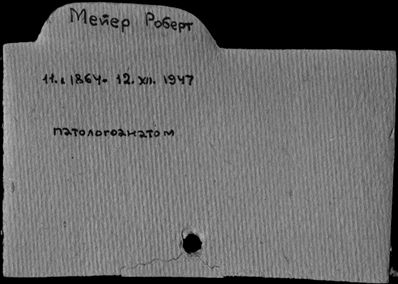 Мейер Роберт
11.I 1864- 12. XII. 1947
патологоанатом